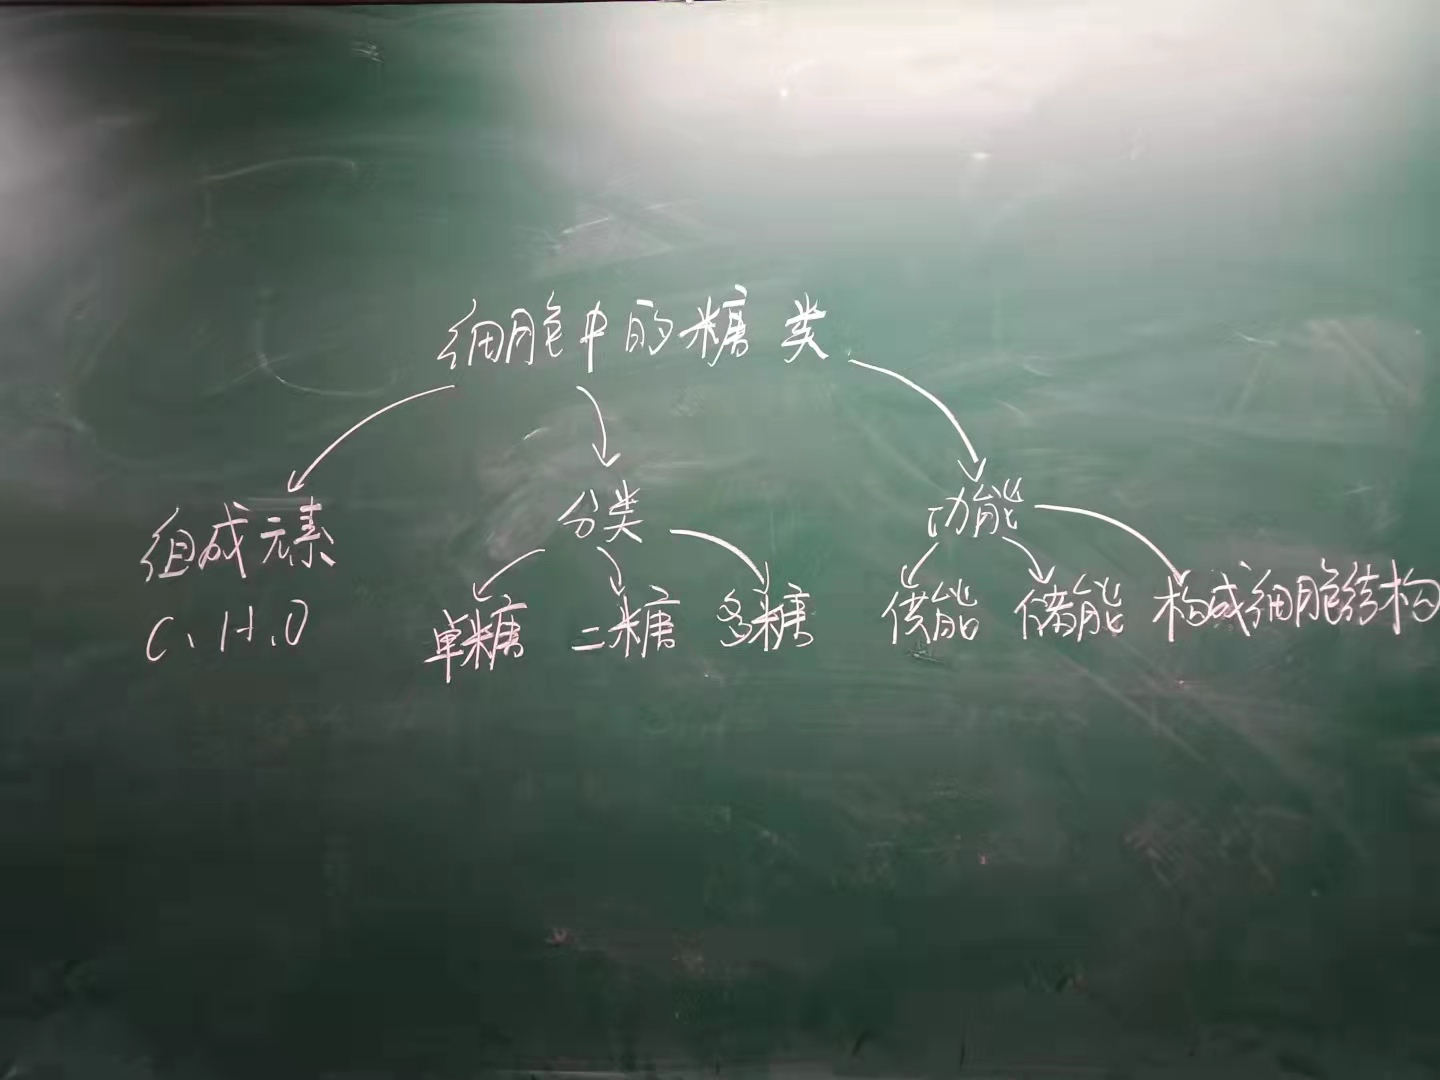 细胞中的糖类
组成元素 分类 功能
C、H、O 单糖 二糖 多糖 供能 储能 构成细胞结构